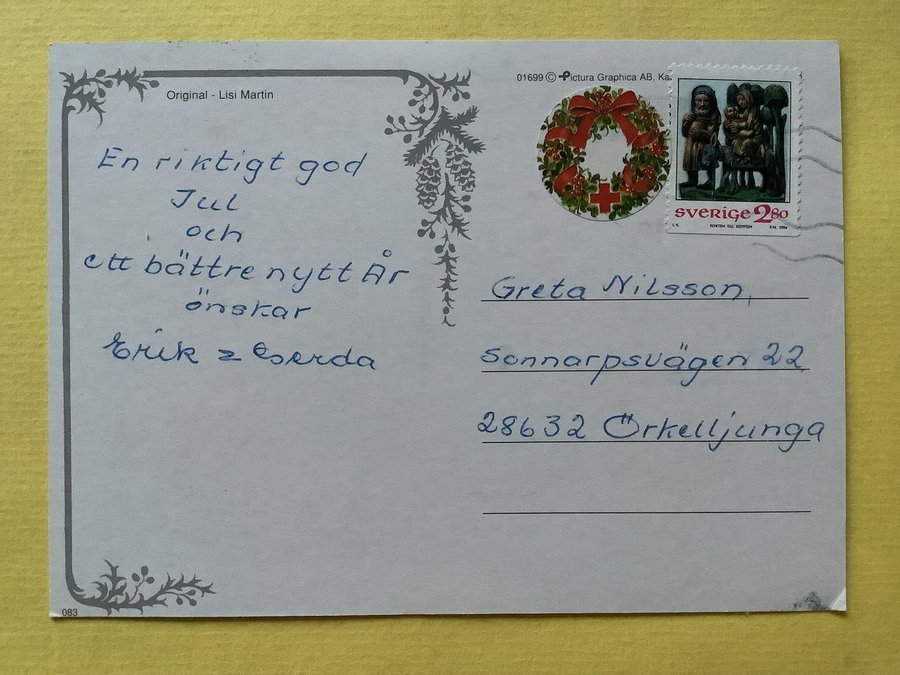 Original - Lisi Martin
01699 © Pictura Graphica AB,
SVERIGE 2.80
FLYKTEN TILL EGYPTEN
En riktigt god
Jul
och
ett bättre nytt År
önskar
Erik & Gerda
Greta Nilsson,
Sonnarpsvägen 22
28632 Örkelljunga
083